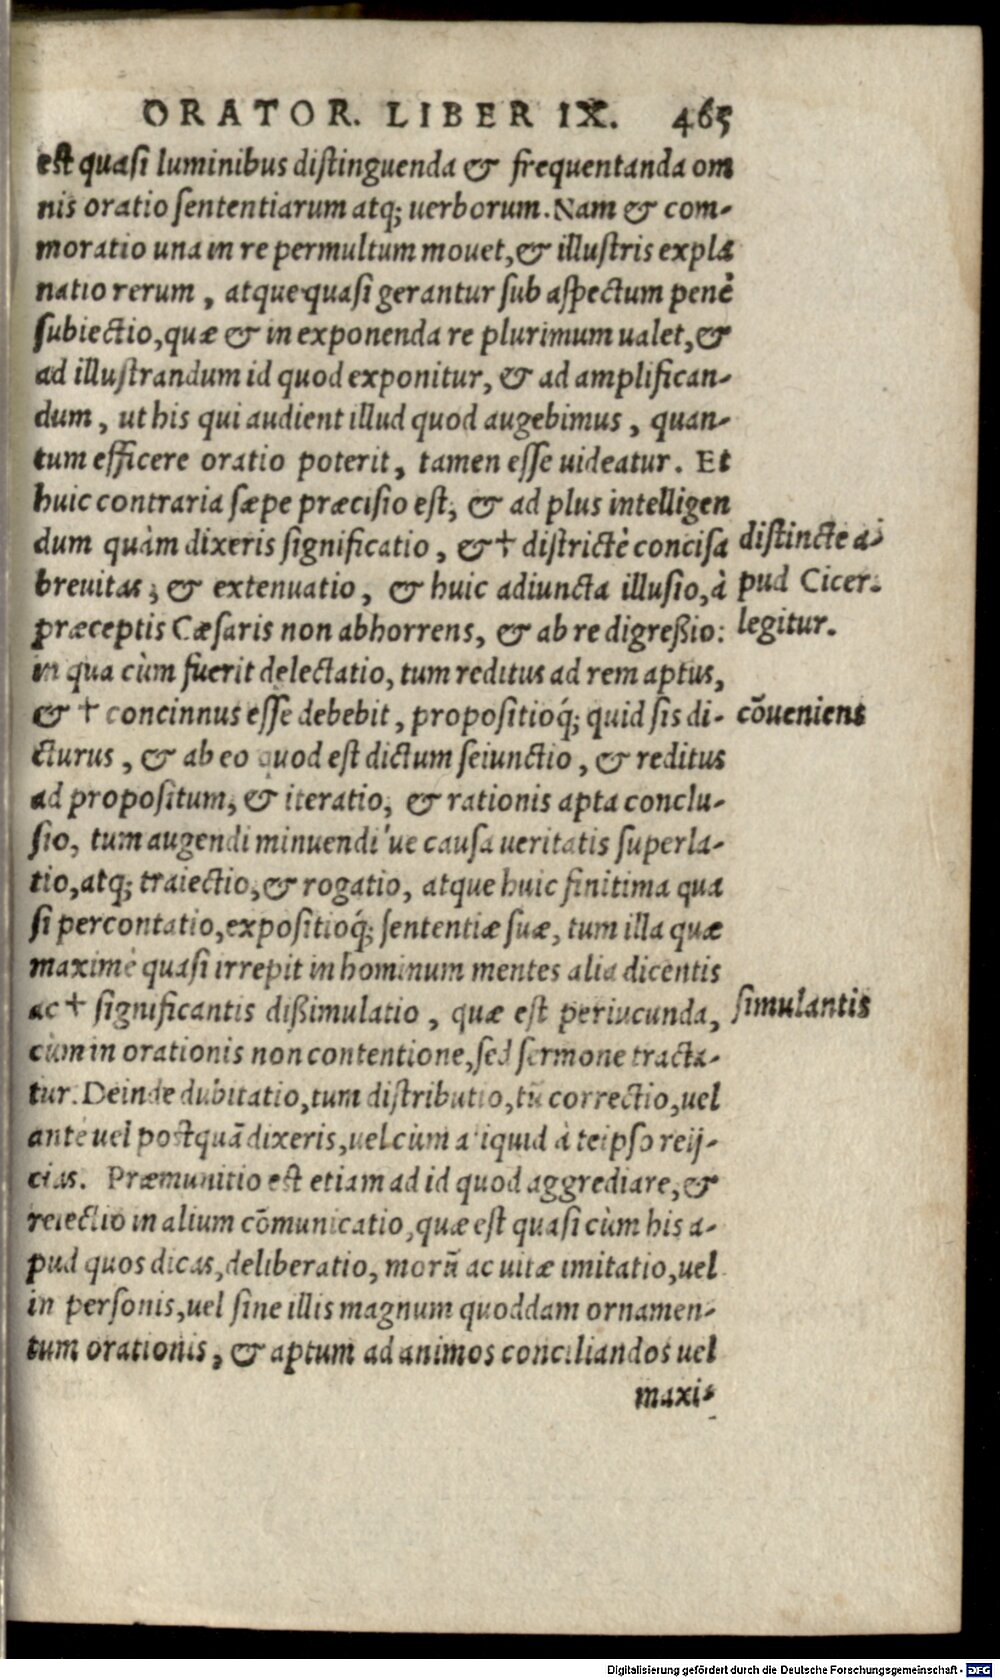 ORATOR. LIBER IX. 465
est quasi luminibus distinguenda & frequentanda om
nis oratio sententiarum atq; uerborum. Nam & com-
moratio una in re permultum mouet, & illustris expla
natio rerum, atque quasi gerantur sub aspectum penè
subiectio, quæ & in exponenda re plurimum ualet, &
ad illustrandum id quod exponitur, & ad amplifican-
dum, ut his qui audient illud quod augebimus, quan-
tum efficere oratio poterit, tamen esse uideatur. Et
huic contraria sæpe præcisio est, & ad plus intelligen
dum quàm dixeris significatio, & † districtè concisa
distincte a-
breuitas, & extenuatio, & huic adiuncta illusio, à
pud Cicer.
præceptis Cæsaris non abhorrens, & ab re digreßio:
legitur.
in qua cùm fuerit delectatio, tum reditus ad rem aptus,
& † concinnus esse debebit, propositioq́; quid sis di-
cõueniens
cturus, & ab eo quod est dictum seiunctio, & reditus
ad propositum, & iteratio, & rationis apta conclu-
sio, tum augendi minuendi'ue causa ueritatis superla-
tio, atq; traiectio, & rogatio, atque huic finitima qua
si percontatio, expositioq́; sententiæ suæ, tum illa quæ
maximè quasi irrepit in hominum mentes alia dicentis
ac † significantis dißimulatio, quæ est periucunda,
simulantis
cùm in orationis non contentione, sed sermone tracta-
tur. Deinde dubitatio, tum distributio, tũ correctio, uel
ante uel postquã dixeris, uel cùm aliquid à teipso reij-
cias. Præmunitio est etiam ad id quod aggrediare, &
reiectio in alium cõmunicatio, quæ est quasi cùm his a-
pud quos dicas, deliberatio, morũ ac uitæ imitatio, uel
in personis, uel sine illis magnum quoddam ornamen-
tum orationis, & aptum ad animos conciliandos uel
maxi-
Digitalisierung gefördert durch die Deutsche Forschungsgemeinschaft - DFG